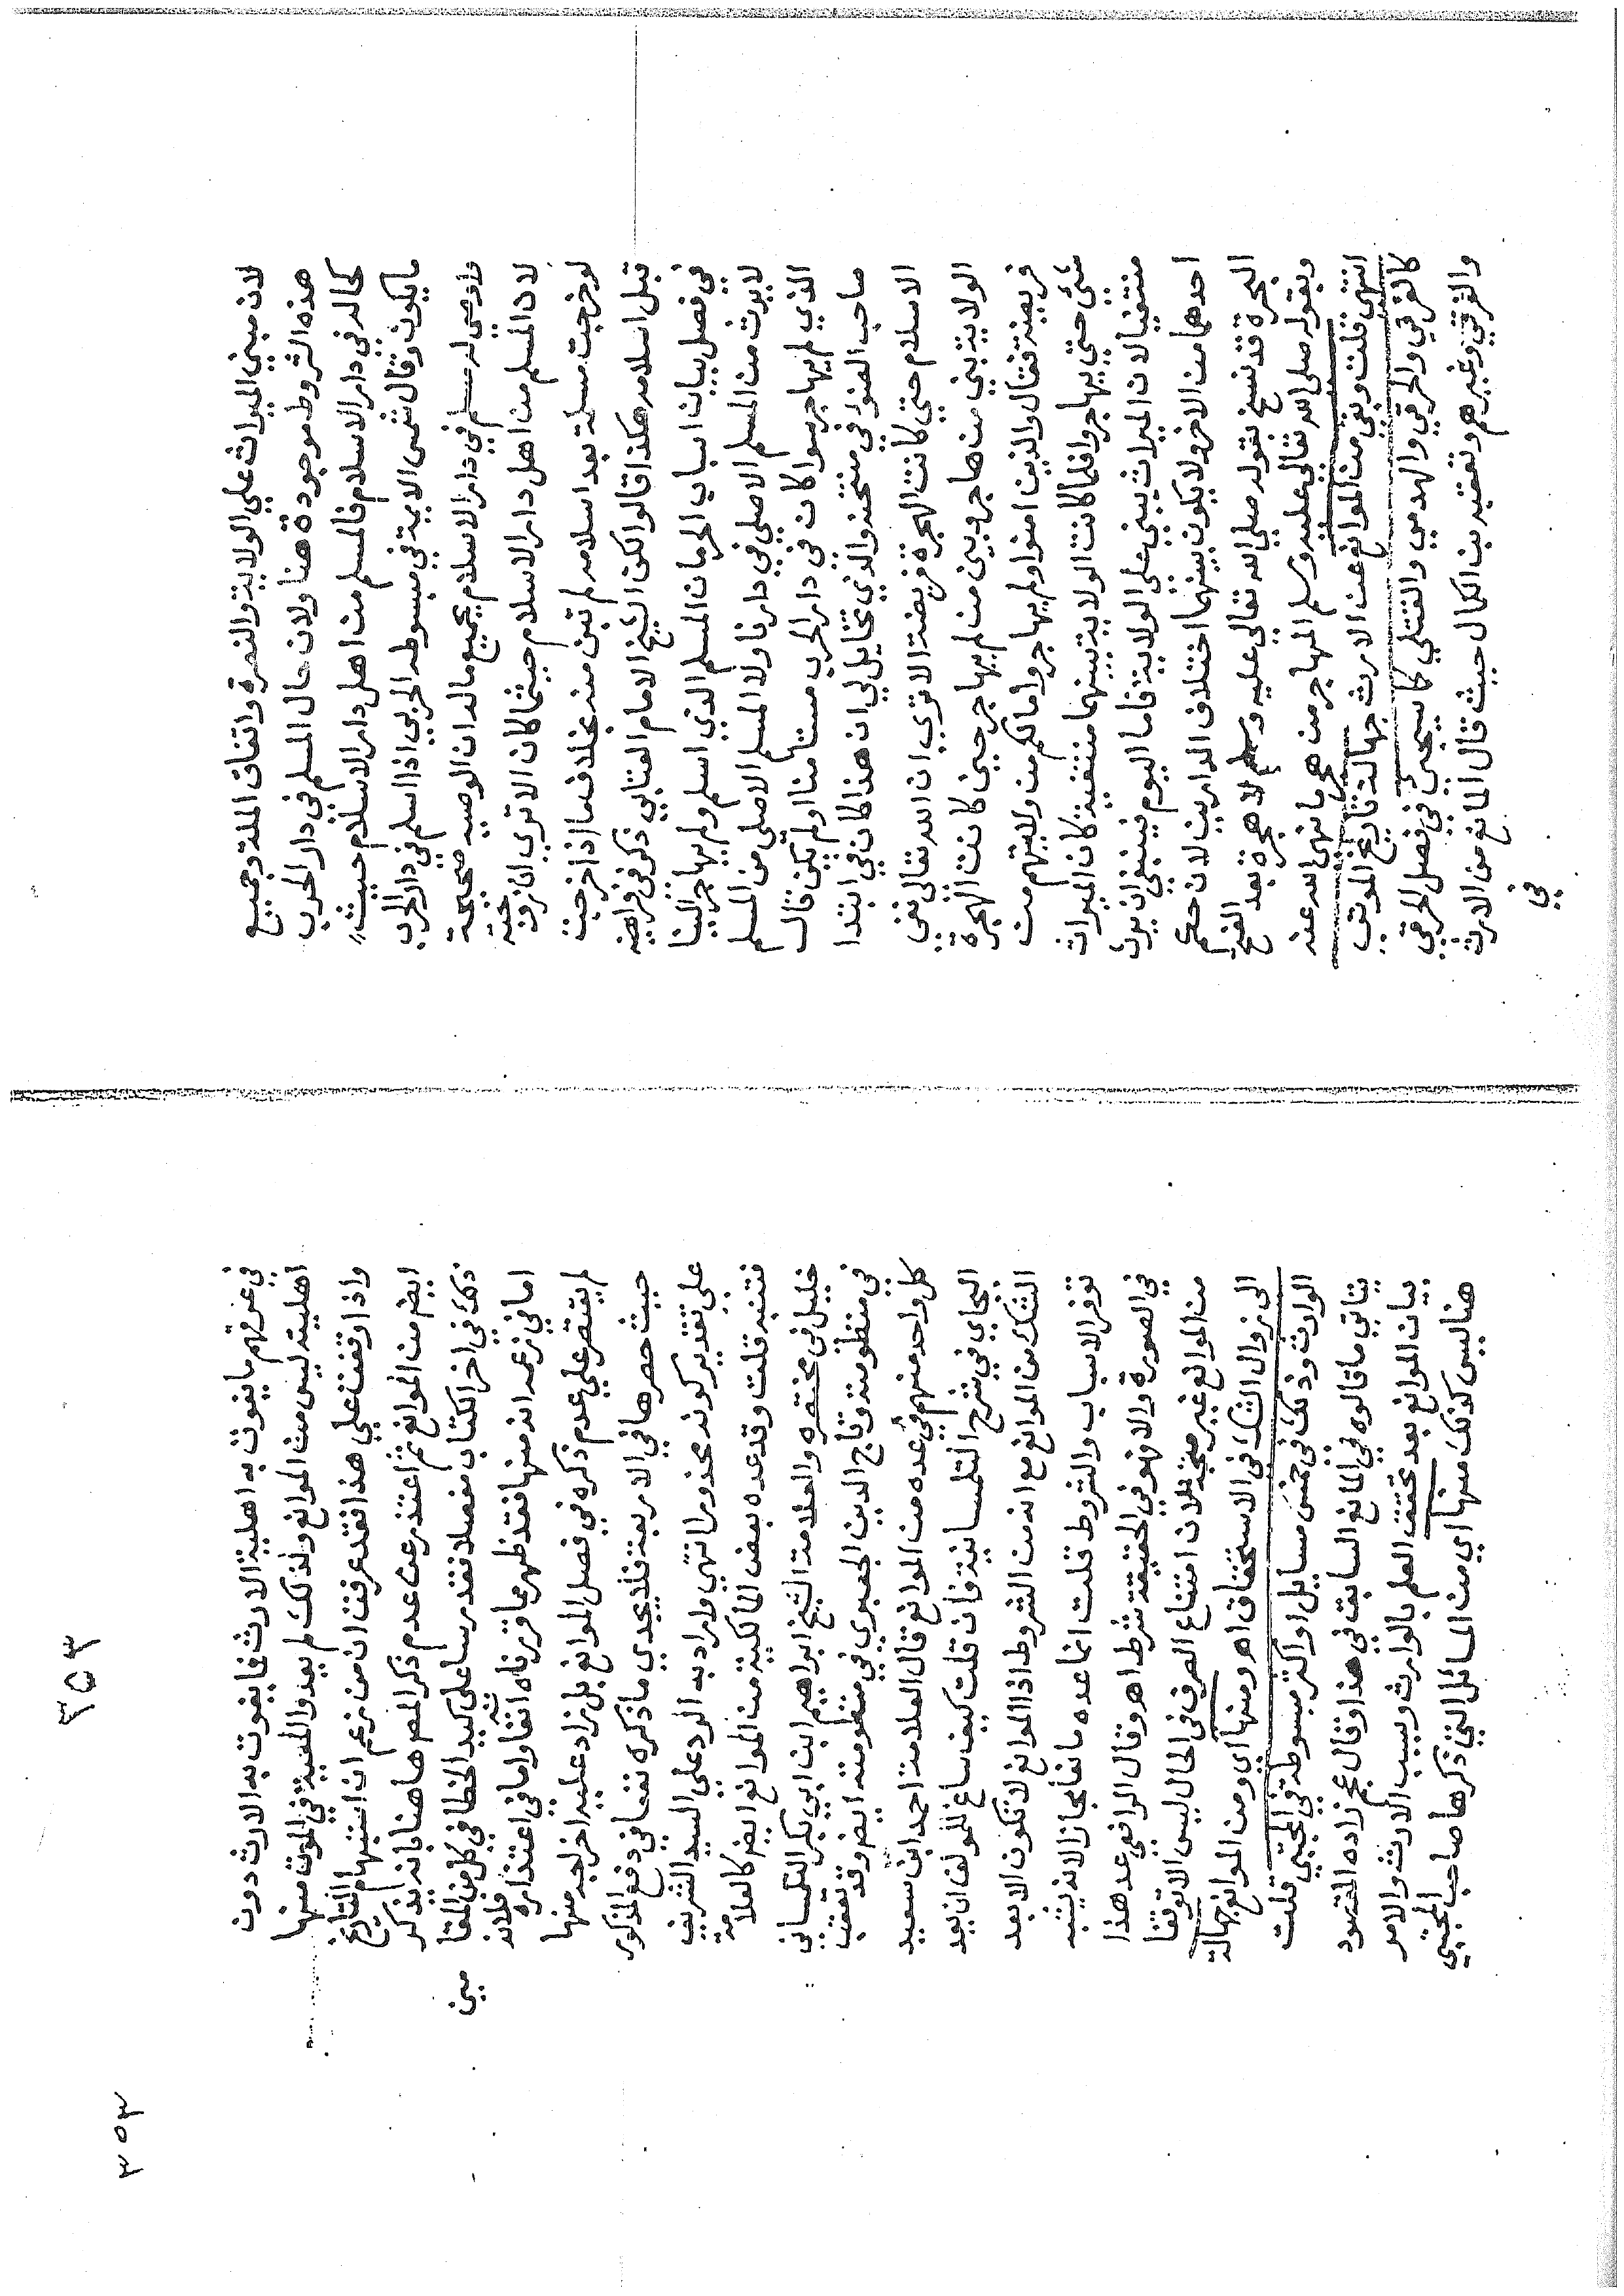 لان مبني الميراث علي الولاية والنصرة واتفاق الملة وجميع
هذه الشروط موجودة هنا ولان حال المسلم في دار الحرب
كحاله في دار الاسلام فالمسلم من اهل دار الاسلام حيث
ما يكون وقال شمس الايمة في مبسوطه الحربي اذا اسلم في دار الحرب
واوصي له مسلم في دار الاسلام بجميع ماله ان الوصيه صحيحة
لان المسلم من اهل دار الاسلام حيثما كان الا تري ان زوجته
لو خرجت مسلمة بعد اسلامه لم تبن منه بخلاف ما اذا خرجت
قبل اسلامه هكذا قالوا لكن الشيخ الامام العتابي ذكر في فرايضه
في فصل بيان اسباب الحرمان المسلم الذي اسلم ولم يهاجر الينا
لا يرث من المسلم الاصلي في دارنا ولا المسلم الاصلي من المسلم
الذي لم يهاجر سوا كان في دار الحرب مستامنا او لم يكن قال
صاحب الضوء في منتخبه والذي تخايل لي ان هذا كان في ابتدا
الاسلام حتي كانت الهجرة فريضة الا تري ان الله تعالي نفي
الولاية بني من هاجر وبين من لم يهاجر حين كانت الهجرة
فريضة فقال والذين امنوا ولم يهاجروا ما لكم من ولايتهم من
شئ حتي يهاجروا فلما كانت الولاية بينهما منتفية كان الميراث
منتفيا لان الميراث يبني علي الولاية فاما اليوم فينبغي ان يرث
احدهما من الاخر ولا يكون بينهما اختلاف الدارين لان حكم
الهجرة قد نسخ بقوله صلي الله تعالي عليه وسلم لا هجرة بعد الفتح
وبقوله صلي الله تعالي عليه وسلم المهاجر من هجر ما نهي الله عنه
انتهي قلت وبقي من الموانع عن الارث جهالة تاريخ الموت
كالغرقي والحرقي والهدمي والقتلي كما سيجئ في فصل الحرقي
والغرقي وغيرهم وتعقبه بن الكمال حيث قال المانع من الارث
في
٣٥٣
٣٥٣
في غرقهم ما يفوت به اهلية الارث فما يفوت به الارث دون
اهليته ليس من الموانع ولذلك لم يعدوا المعية في الموت منها
واذا وقفت علي هذا فقد عرفت ان من زعم ان استبهام التاريخ
ايضم من الموانع ثم اعتذر عن عدم ذكر المصر هاهنا بانه يذكر
ذكره في اخر الكتاب مفصلا فقد مر ساعلي كيد الخطا في كل من المقا
مين
اما في زعمه انه منها فقد ظهر مما قررناه انفا واما في اعتذاره فلانه
لم يقتصر علي عدم ذكره في فصل الموانع بل زاد عليه اخراجه منها
حيث حصرها في الاربعة فلا يجدي ما ذكره نفعا في دفع المذكور
علي تقدير كونه محذورا انتهي واراد به الرد علي السيد الشريف
فتنبه قلت وقد عده بعض المالكية من الموانع ايضم كالعلامة
خليل في مختصره والعلامة الشيخ ابراهيم ابن ابي بكر التلمساني
في منظومته وتاج الدين الجعبري في منظومته ايضم وقد تعقب
كل واحد منهم في عده من الموانع قال العلامة احمد ابن سعيد
البجاي في شرح التلمسانية فان قلت كيف ساغ للمولف ان يعد
الشك من الموانع مع انه من الشروط اذا الموانع لا تكون الا بعد
توفر الاسباب والشروط قلت انما عده مانعا مجازا لانه يشبه
في الصورة والا فهو في الحقيقة شرط اهر وقال الرافعي عد هذا
من الموانع غير متجه لان امتناع الصرف في الحال ليس الا توقفا
الي زوال الشك في الاستحقاق اهر ومنها اي ومن الموانع جهالة
الوارث وذلك في خمس مسايل او اكثر مبسوطة في المجتبي قلت
يتاتي ما قالوه في المانع السابق في هذا وقال عجم زاده المقصود
بيان الموانع بعد تحقق العلم بالوارث وبسبب الارث والامر
هنا ليس كذلك منها اي من المسائل التي ذكرها صاحب المجتبي